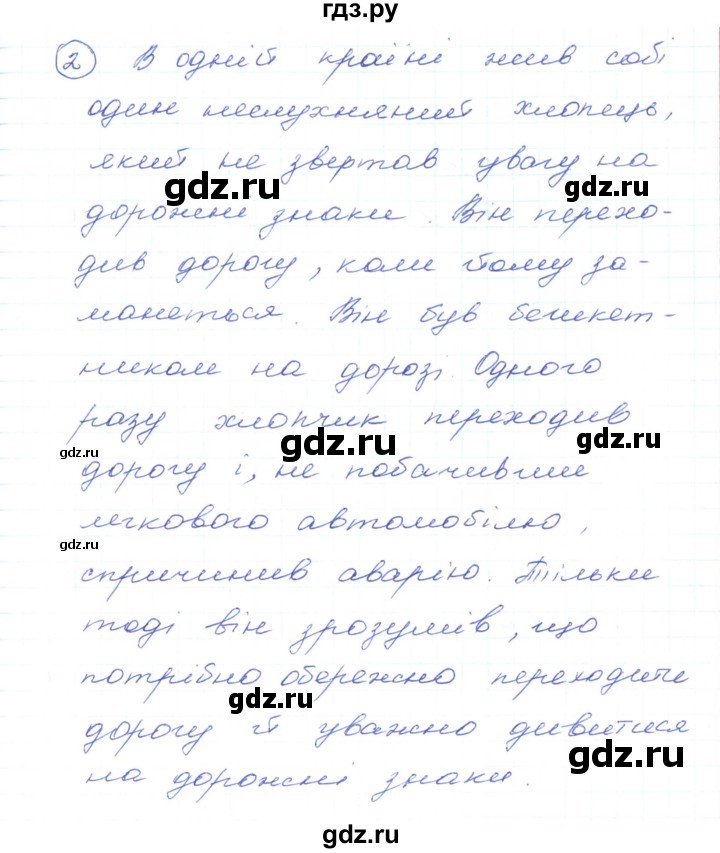 гдз.ру
2 В одній країні жив собі
один неслухняний хлопець,
який не звертав увагу на
gdz.ru
gdz.ru
дорожні знаки. Він перехо-
див дорогу, коли йому за-
манеться. Він був бешкет-
ником на дорозі. Одного
разу хлопчик переходив
gdz.ru
gdz.ru
gdz.ru
дорогу і, не побачивши
легкового автомобілю,
gdz.ru
спричинив аварію. Тільки
тоді він зрозумів, що
потрібно обережно переходити
gdz.ru
дорогу й уважно дивитися
gdz.ru
на дорожні знаки.
gdz.ru